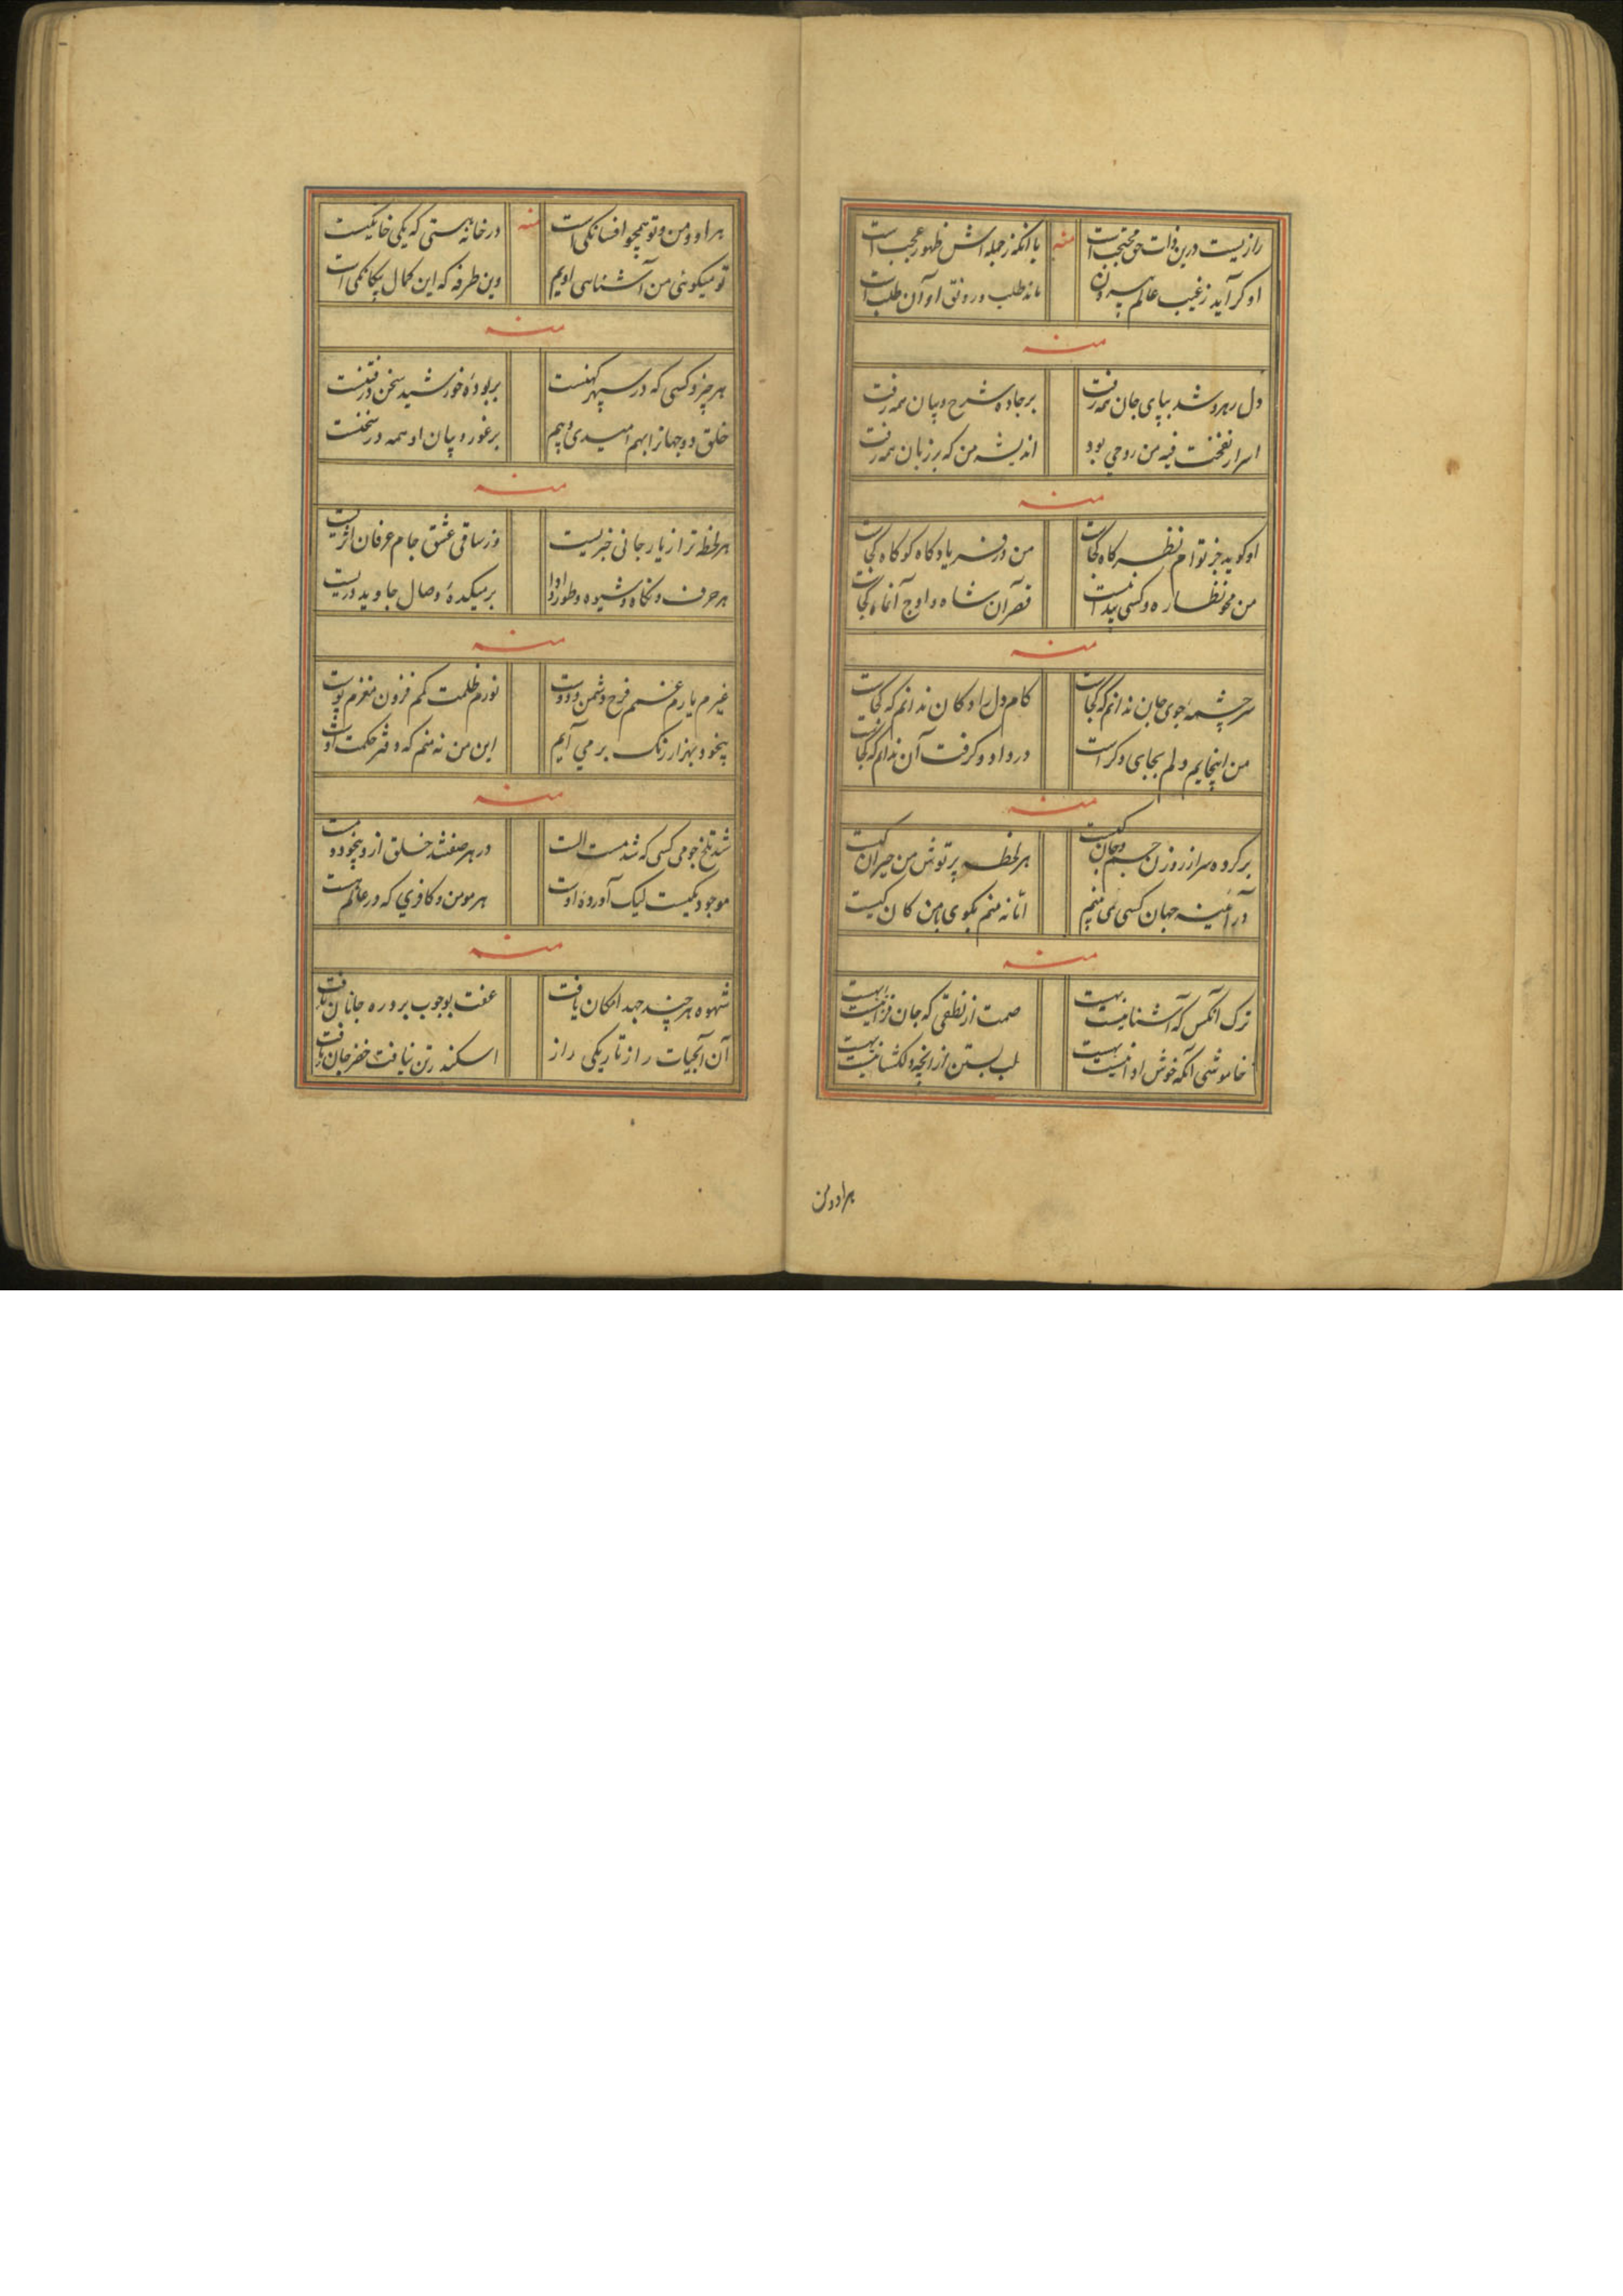 رازیست درین ذات حق محتجب است منه با آنکه ز جمله اش ظهور عجب است
او گر آید ز غیب عالم بیرون مانه طلب و رونق او آن طلب است
منه
دل رهرو شد بپای جان همه رفت بر جاده شرح و بیان همه رفت
اسرار نفخت فیه من روحی بود اندیشه من که بر زبان همه رفت
منه
او کوید جز تو ام نظر کاه کجاست من در فریاد کاه کو کاه کجاست
من محو نظاره و کسی پیدا نیست قصر آن شاه و اوج آنماه کجاست
منه
سرچشمهٔ جوی جان ندانم که کجاست کام دل را دکان ندانم که کجاست
من اینجایم دلم بجای دکر است درد او و کرفت آن ندانم که کجاست
منه
بر کرده سر از روزن جسم و جان کیست هر لحظه پرتوش من حیران کیست
در آئینه جهان کسی می بینم اما نه منم بکوی با من کان کیست
منه
ترک آنکس که آشنا نیست بهست صمت از نطقی که جان فزا نیست بهست
خاموشی آنکه خوش ادا نیست بهست لب بستن از انچه دلکشا نیست بهست
هر او و من
هر او و من و تو همچو افسانکی است منه در خانه هستی که یکی خانکیست
تو میکوئی من آشنای اویم وین طرفه که این کمال بیکانکی است
منه
هر چیز و کسی که در سپهر کهنست بر بوده خورشید سخن در فتنست
خلق دو جهان را بهم امیدی و بیم بر غور و بیان او همه در سخنست
منه
هر لحظه ترا ز یار جانی خبریست وز ساقی عشق جام عرفان اثریست
هر حرف و نکاه و شیوه و طور و ادا بر میکدهٔ وصال جاوید دریست
منه
غیرم یارم غمم فرح دشمن دوست نورم ظلمت کم فزون مغزم پوست
بیخود بهزار رنک بر می آیم این من نه منم که دفتر حکمت اوست
منه
شد تلخ جو می کسی که شد مست الست در هر صفتند خلق ازو بیخود و مست
موجود یکیست لیک آورده اوست هر مومن و کافری که در عالم هست
منه
شهوه هر چند جهد امکان یافت عفت بوجوب بر در جانان یافت
آن آبحیات را ز تاریکی راز اسکندر تن نیافت خضر جان یافت